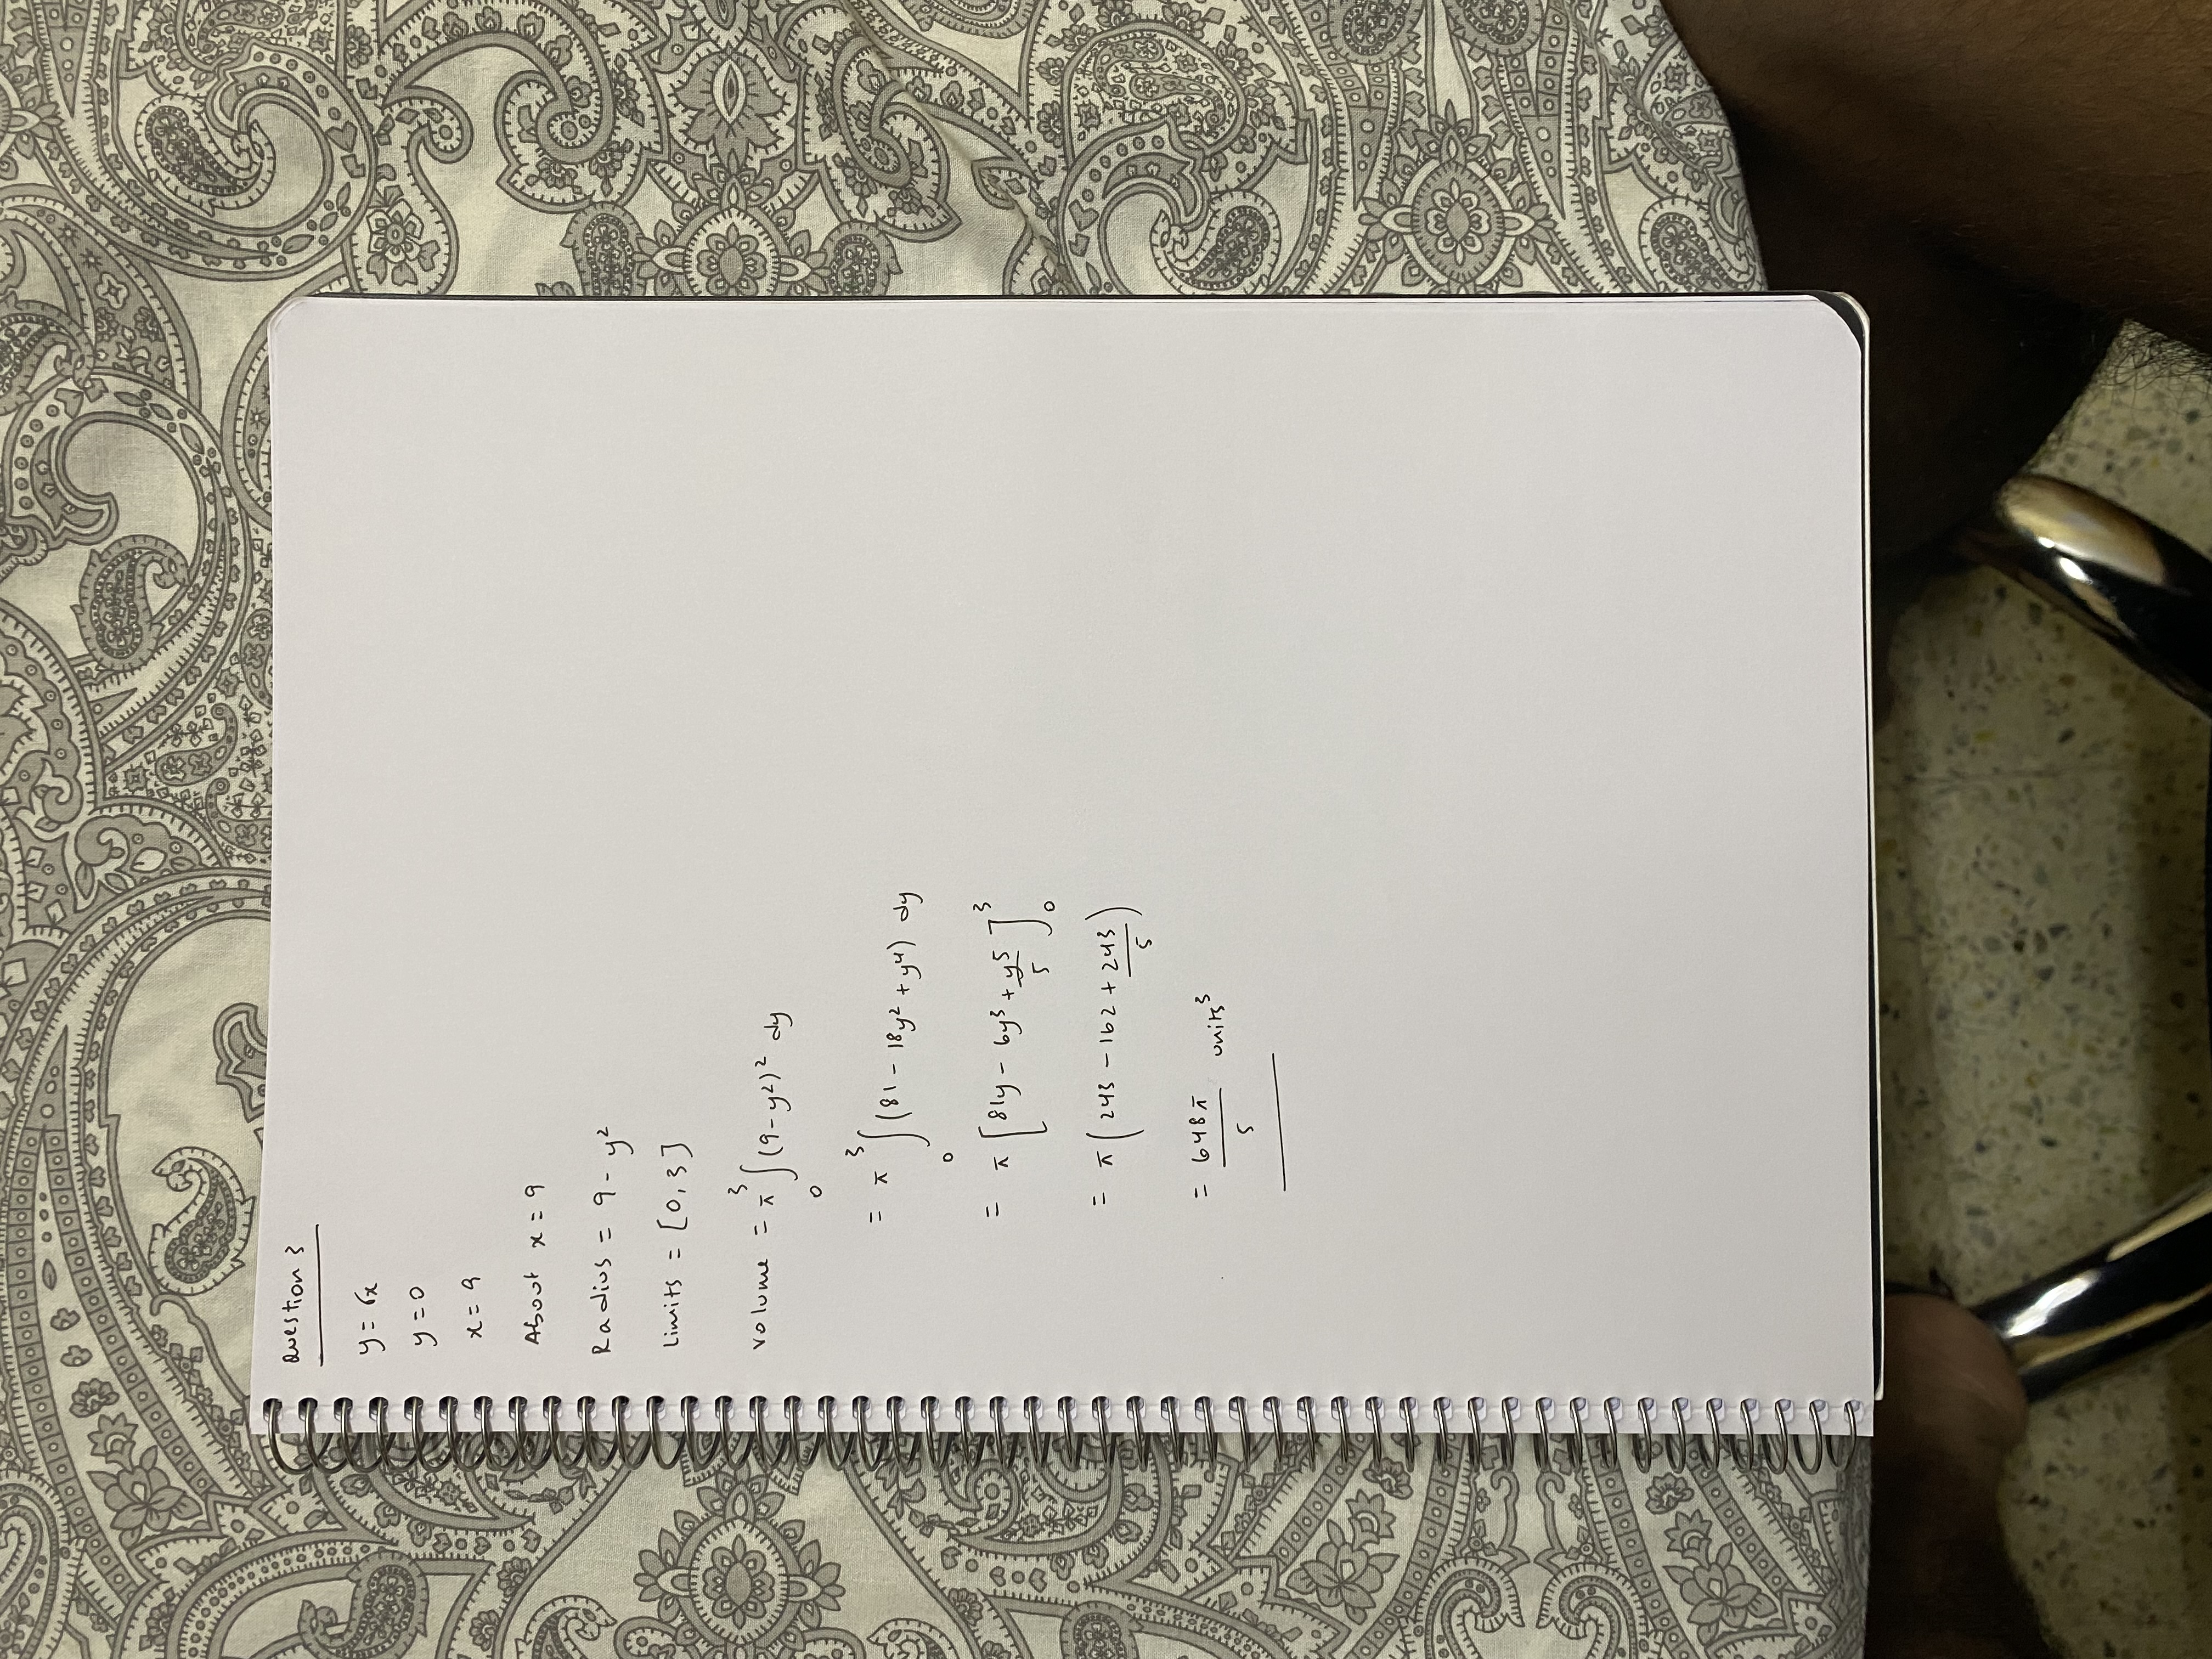 Question 3
y = √x
y = 0
x = 9
About x = 9
Radius = 9 - y²
Limits = [0, 3]
Volume = π ∫₀³ (9 - y²)² dy
= π ∫₀³ (81 - 18y² + y⁴) dy
= π [81y - 6y³ + y⁵/5]₀³
= π (243 - 162 + 243/5)
= 648π/5 units³